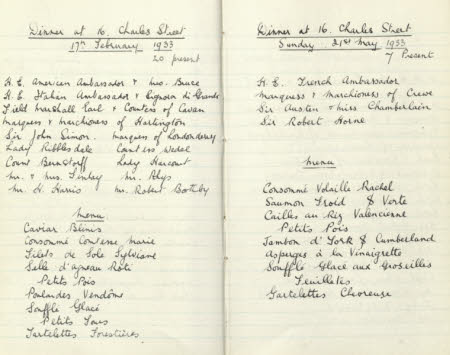 Dinner at 16. Charles Street
17th February 1933
20 present
H. E. American Ambassador & Mrs. Bruce
H. E. Italian Ambassador & Signora di Grandi
Field Marshall Earl & Countess of Cavan
Marquess & Marchioness of Hartington
Sir John Simon. Marquess of Londonderry
Lady Ribblesdale Countess Wedel
Count Bernstorff Lady Harcourt
Mr. & Mrs. Finlay Mr.
Mr. H. Harris Mr. Robert Boothby
Menu
Caviar Blinis
Consommé Comtesse Marie
Filets de Sole Sylviane
Selle d'agneau Roti
Petits Pois
Poulardes Vendôme
Soufflé Glacé
Petits Fours
Tartelettes Forestières
Dinner at 16. Charles Street
Sunday 21st May 1933
7 Present
H. E. French Ambassador
Marquess & Marchioness of Crewe
Sir Austen & Miss Chamberlain
Sir Robert Horne
Menu
Consommé Volaille Rachel
Saumon Froid & Verte
Cailles au Riz Valencienne
Petits Pois
Jambon d'York & Cumberland
Asperges à la Vinaigrette
Soufflé Glacé aux Groseilles
Feuilletés
Tartelettes Chevreuse